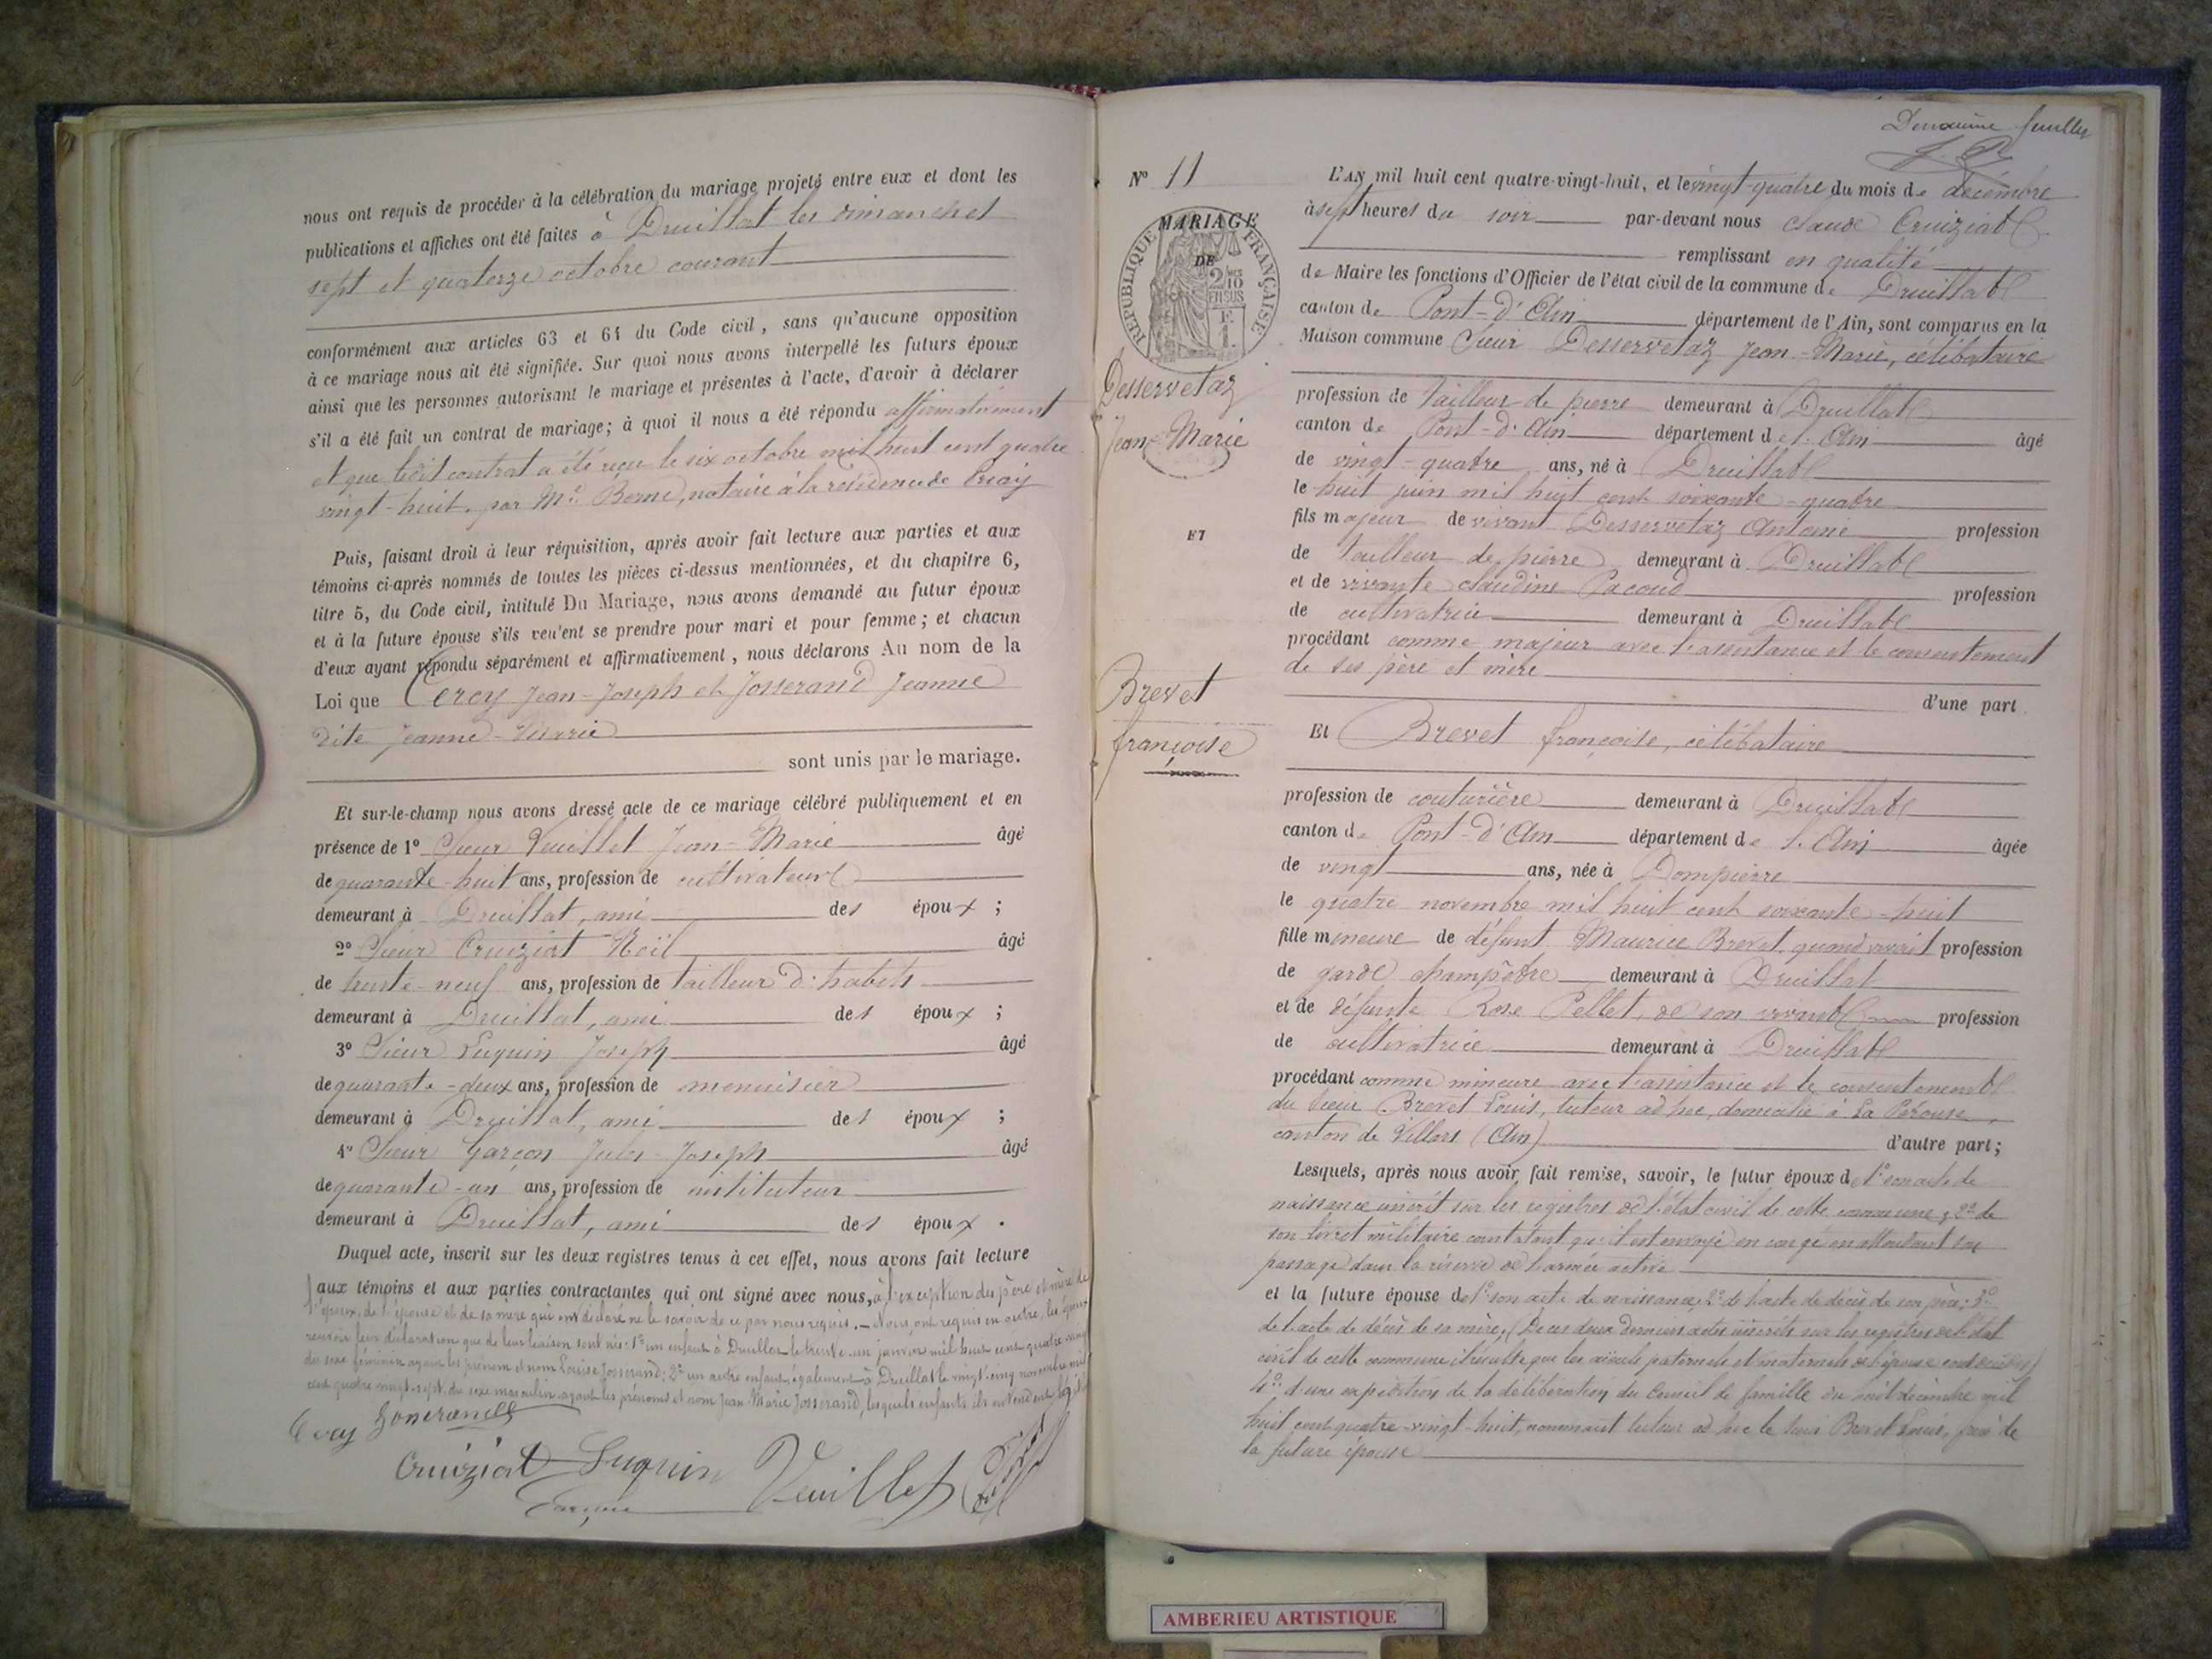 nous ont requis de procéder à la célébration du mariage projeté entre eux et dont les
publications et affiches ont été faites à Druillat les dimanches
sept et quatorze octobre courant
conformément aux articles 63 et 64 du Code civil, sans qu'aucune opposition
à ce mariage nous ait été signifiée. Sur quoi nous avons interpellé les futurs époux
ainsi que les personnes autorisant le mariage et présentes à l'acte, d'avoir à déclarer
s'il a été fait un contrat de mariage; à quoi il nous a été répondu affirmativement
et que ledit contrat a été reçu le six octobre mil huit cent quatre
vingt-huit par Me notaire à la résidence de
Puis, faisant droit à leur réquisition, après avoir fait lecture aux parties et aux
témoins ci-après nommés de toutes les pièces ci-dessus mentionnées, et du chapitre 6,
titre 5, du Code civil, intitulé Du Mariage, nous avons demandé au futur époux
et à la future épouse s'ils veulent se prendre pour mari et pour femme; et chacun
d'eux ayant répondu séparément et affirmativement, nous déclarons Au nom de la
Loi que Jean-Joseph et Josserand Jeanne
dite Jeanne-Marie
sont unis par le mariage.
Et sur-le-champ nous avons dressé acte de ce mariage célébré publiquement et en
présence de 1° Sieur Veuillet Jean-Marie âgé
de quarante-huit ans, profession de cultivateur
demeurant à Druillat, ami des époux;
2° Sieur Cruiziat Noël âgé
de trente-neuf ans, profession de tailleur d'habits
demeurant à Druillat, ami des époux;
3° Sieur Luquin Joseph âgé
de quarante-deux ans, profession de menuisier
demeurant à Druillat, ami des époux;
4° Sieur Garçon Jules-Joseph âgé
de quarante-un ans, profession de instituteur
demeurant à Druillat, ami des époux.
Duquel acte, inscrit sur les deux registres tenus à cet effet, nous avons fait lecture
aux témoins et aux parties contractantes qui ont signé avec nous, à l'exception des père et mère de
l'époux, de l'épouse et de sa mère qui ont déclaré ne le savoir de ce par nous requis. — Nous ont requis en outre, les époux
recevoir leur déclaration que de leur liaison sont nés: 1° un enfant à Druillat le trente-un janvier mil huit cent quatre vingt
du sexe féminin ayant les prénom et nom Louise Josserand; 2° un autre enfant également à Druillat le vingt-cinq novembre mil
cent quatre vingt-sept, du sexe masculin ayant les prénoms et nom Jean-Marie Josserand, lesquels enfants ils entendent
Josserand
Cruiziat Luquin Veuillet
Garçon
Deuxième feuillet
N° 11
MARIAGE
DE
RÉPUBLIQUE FRANÇAISE
2/10 EN SUS
F. 1.
Desservetaz
Jean-Marie
ET
Brevet
françoise
L'AN mil huit cent quatre-vingt-huit, et le vingt-quatre du mois de décembre
à sept heures du soir par-devant nous Claude Cruiziat
remplissant en qualité
de Maire les fonctions d'Officier de l'état civil de la commune de Druillat
canton de Pont-d'Ain département de l'Ain, sont comparus en la
Maison commune Sieur Desservetaz Jean-Marie, célibataire
profession de tailleur de pierre demeurant à Druillat
canton de Pont-d'Ain département de l'Ain âgé
de vingt-quatre ans, né à Druillat
le huit juin mil huit cent soixante-quatre
fils majeur de vivant Desservetaz Antoine profession
de tailleur de pierre demeurant à Druillat
et de vivante Claudine Pacoud profession
de cultivatrice demeurant à Druillat
procédant comme majeur avec l'assistance et le consentement
de ses père et mère
d'une part
Et Brevet françoise, célibataire
profession de couturière demeurant à Druillat
canton de Pont-d'Ain département de l'Ain âgée
de vingt ans, née à Dompierre
le quatre novembre mil huit cent soixante-huit
fille mineure de défunt Maurice Brevet quand vivait profession
de garde champêtre demeurant à Druillat
et de défunte Rose Pellet, de son vivant profession
de cultivatrice demeurant à Druillat
procédant comme mineure avec l'assistance et le consentement
du sieur Brevet Louis, tuteur ad hoc, domicilié à La Pérouse,
canton de Villars (Ain) d'autre part;
Lesquels, après nous avoir fait remise, savoir, le futur époux de 1° son acte de
naissance inscrit sur les registres de l'état civil de cette commune; 2° de
son livret militaire constatant qu'il est envoyé en congé en attendant son
passage dans la réserve de l'armée active
et la future épouse de 1° son acte de naissance; 2° de l'acte de décès de son père; 3°
de l'acte de décès de sa mère; (De ces deux derniers actes inscrits sur les registres de l'état
civil de cette commune il résulte que les aïeuls paternels et maternels de l'épouse sont décédés)
4° d'une expédition de la délibération du Conseil de famille du décembre mil
huit cent quatre-vingt-huit, nommant tuteur ad hoc le sieur Brevet Louis, frère de
la future épouse
AMBERIEU ARTISTIQUE